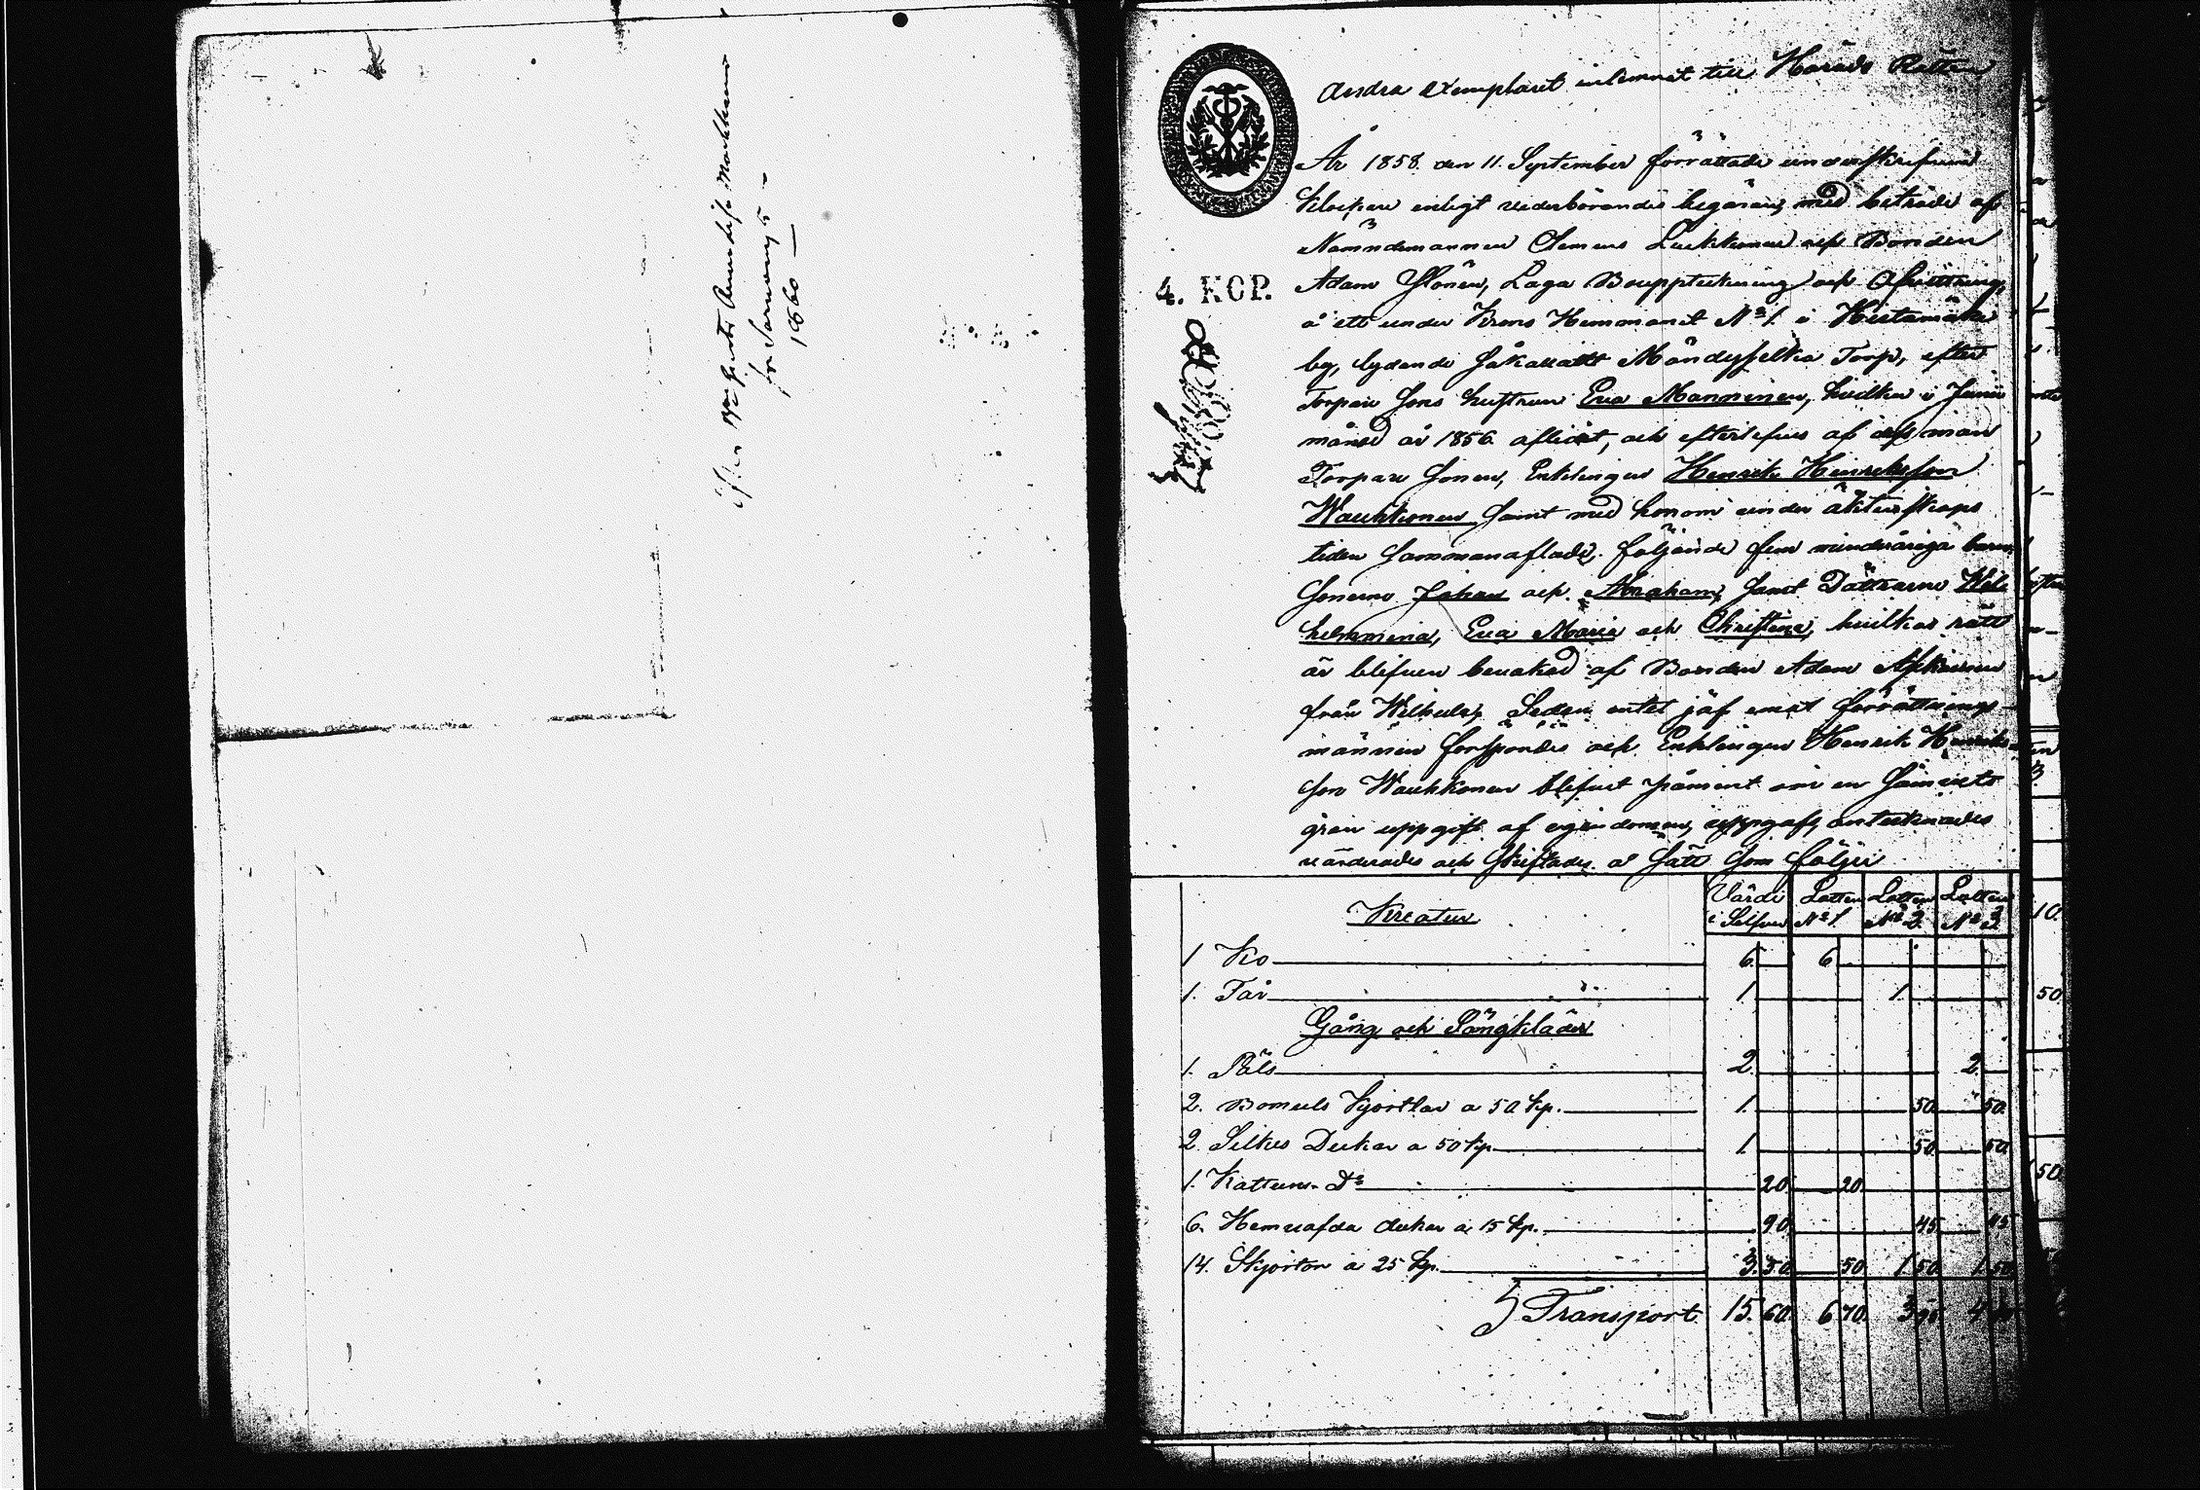 1860
Andra exemplaret inlemnat till Härads Rätten
4. KOP.
År 1858 den 11. September förrättade undertskrefven
Klockare enligt vederbörandes begäran, med biträde af
Nämndemannen Clemens Lukkonen och Bonden
Adam Ylönen, Laga Bouppteckning och Afvittring,
å ett under Krono Hemmanet No 1. i
by, lydande såkalladt Mändyselkä Torp, efter
Torpare Sons hustrun Eva Manninen, hvilken i Junii
månad år 1856 aflidit, och efterlefves af dess man
Torpare Sonen, Enklingen Henrik Henriksson
Wauhkonen samt med honom under äktenskaps
tiden sammanaflade följande fem minderåriga barn,
Sönerne Johan och Abraham, samt Döttrarne Wil
helmmina, Eva Maria och Christina, hvilkas rätt
är blifven bevakad af Bonden Adam
från Sedan intet jäf emot förrättnings-
männen försporades och Enklingen Henrik Henriks
son Wauhkonen blifvit påmint om en samvets
gran uppgift af egendomen, uppgafs, antecknades
värderades och skiftades å sätt som följer
Kreatur Värde i Silfver Lotten No 1. Lotten No 2. Lotten No 3.
1 Ko 6 6
1. Får 1. 1.
Gång och Sängkläder
1. Päls 2. 2.
2. Bomuls Kjortlar a 50 kp. 1. 50. 50.
2. Silkes Dukar a 50 kp 1. 50. 50.
1. Kattuns Do 20. 20.
6. Hemväfda dukar a 15 kp. 90. 45. 45.
14. Skjortor a 25 kp. 3. 50. 50. 1. 50. 1. 50.
Transport 15. 60. 6 70. 3 95. 4